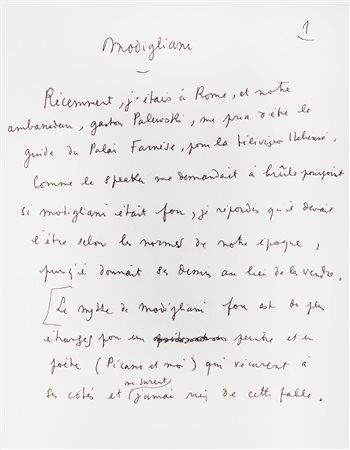 1
Modigliani
Récemment, j'étais à Rome, et notre
ambassadeur, gaston Palewski, me pria d'être le
guide du Palais Farnèse, pour la télévision italienne.
Comme le speaker me demandait à brûle pourpoint
si modigliani était fou, je répondis qu'il devait
l'être selon les normes de notre époque,
puisqu'il donnait ses dessins au lieu de les vendre.
[Le mythe de Modigliani fou est des plus
étranges pour un peintre et un
poète (Picasso et moi) qui vécurent à
ses côtés et ne surent jamais rien de cette fable.